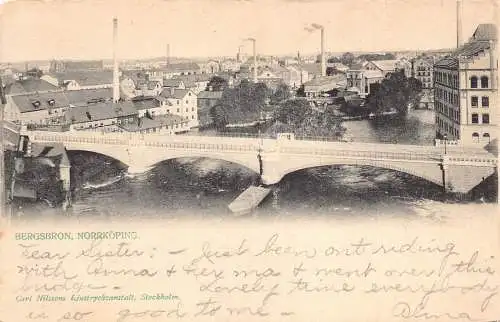 BERGSBRON, NORRKÖPING.
Dear Sister: - Just been out riding
with Anna & her ma & went over this
bridge - Lovely time everybody
Carl Nilssons Ljustrycksanstalt, Stockholm.
is so good to me - Alma